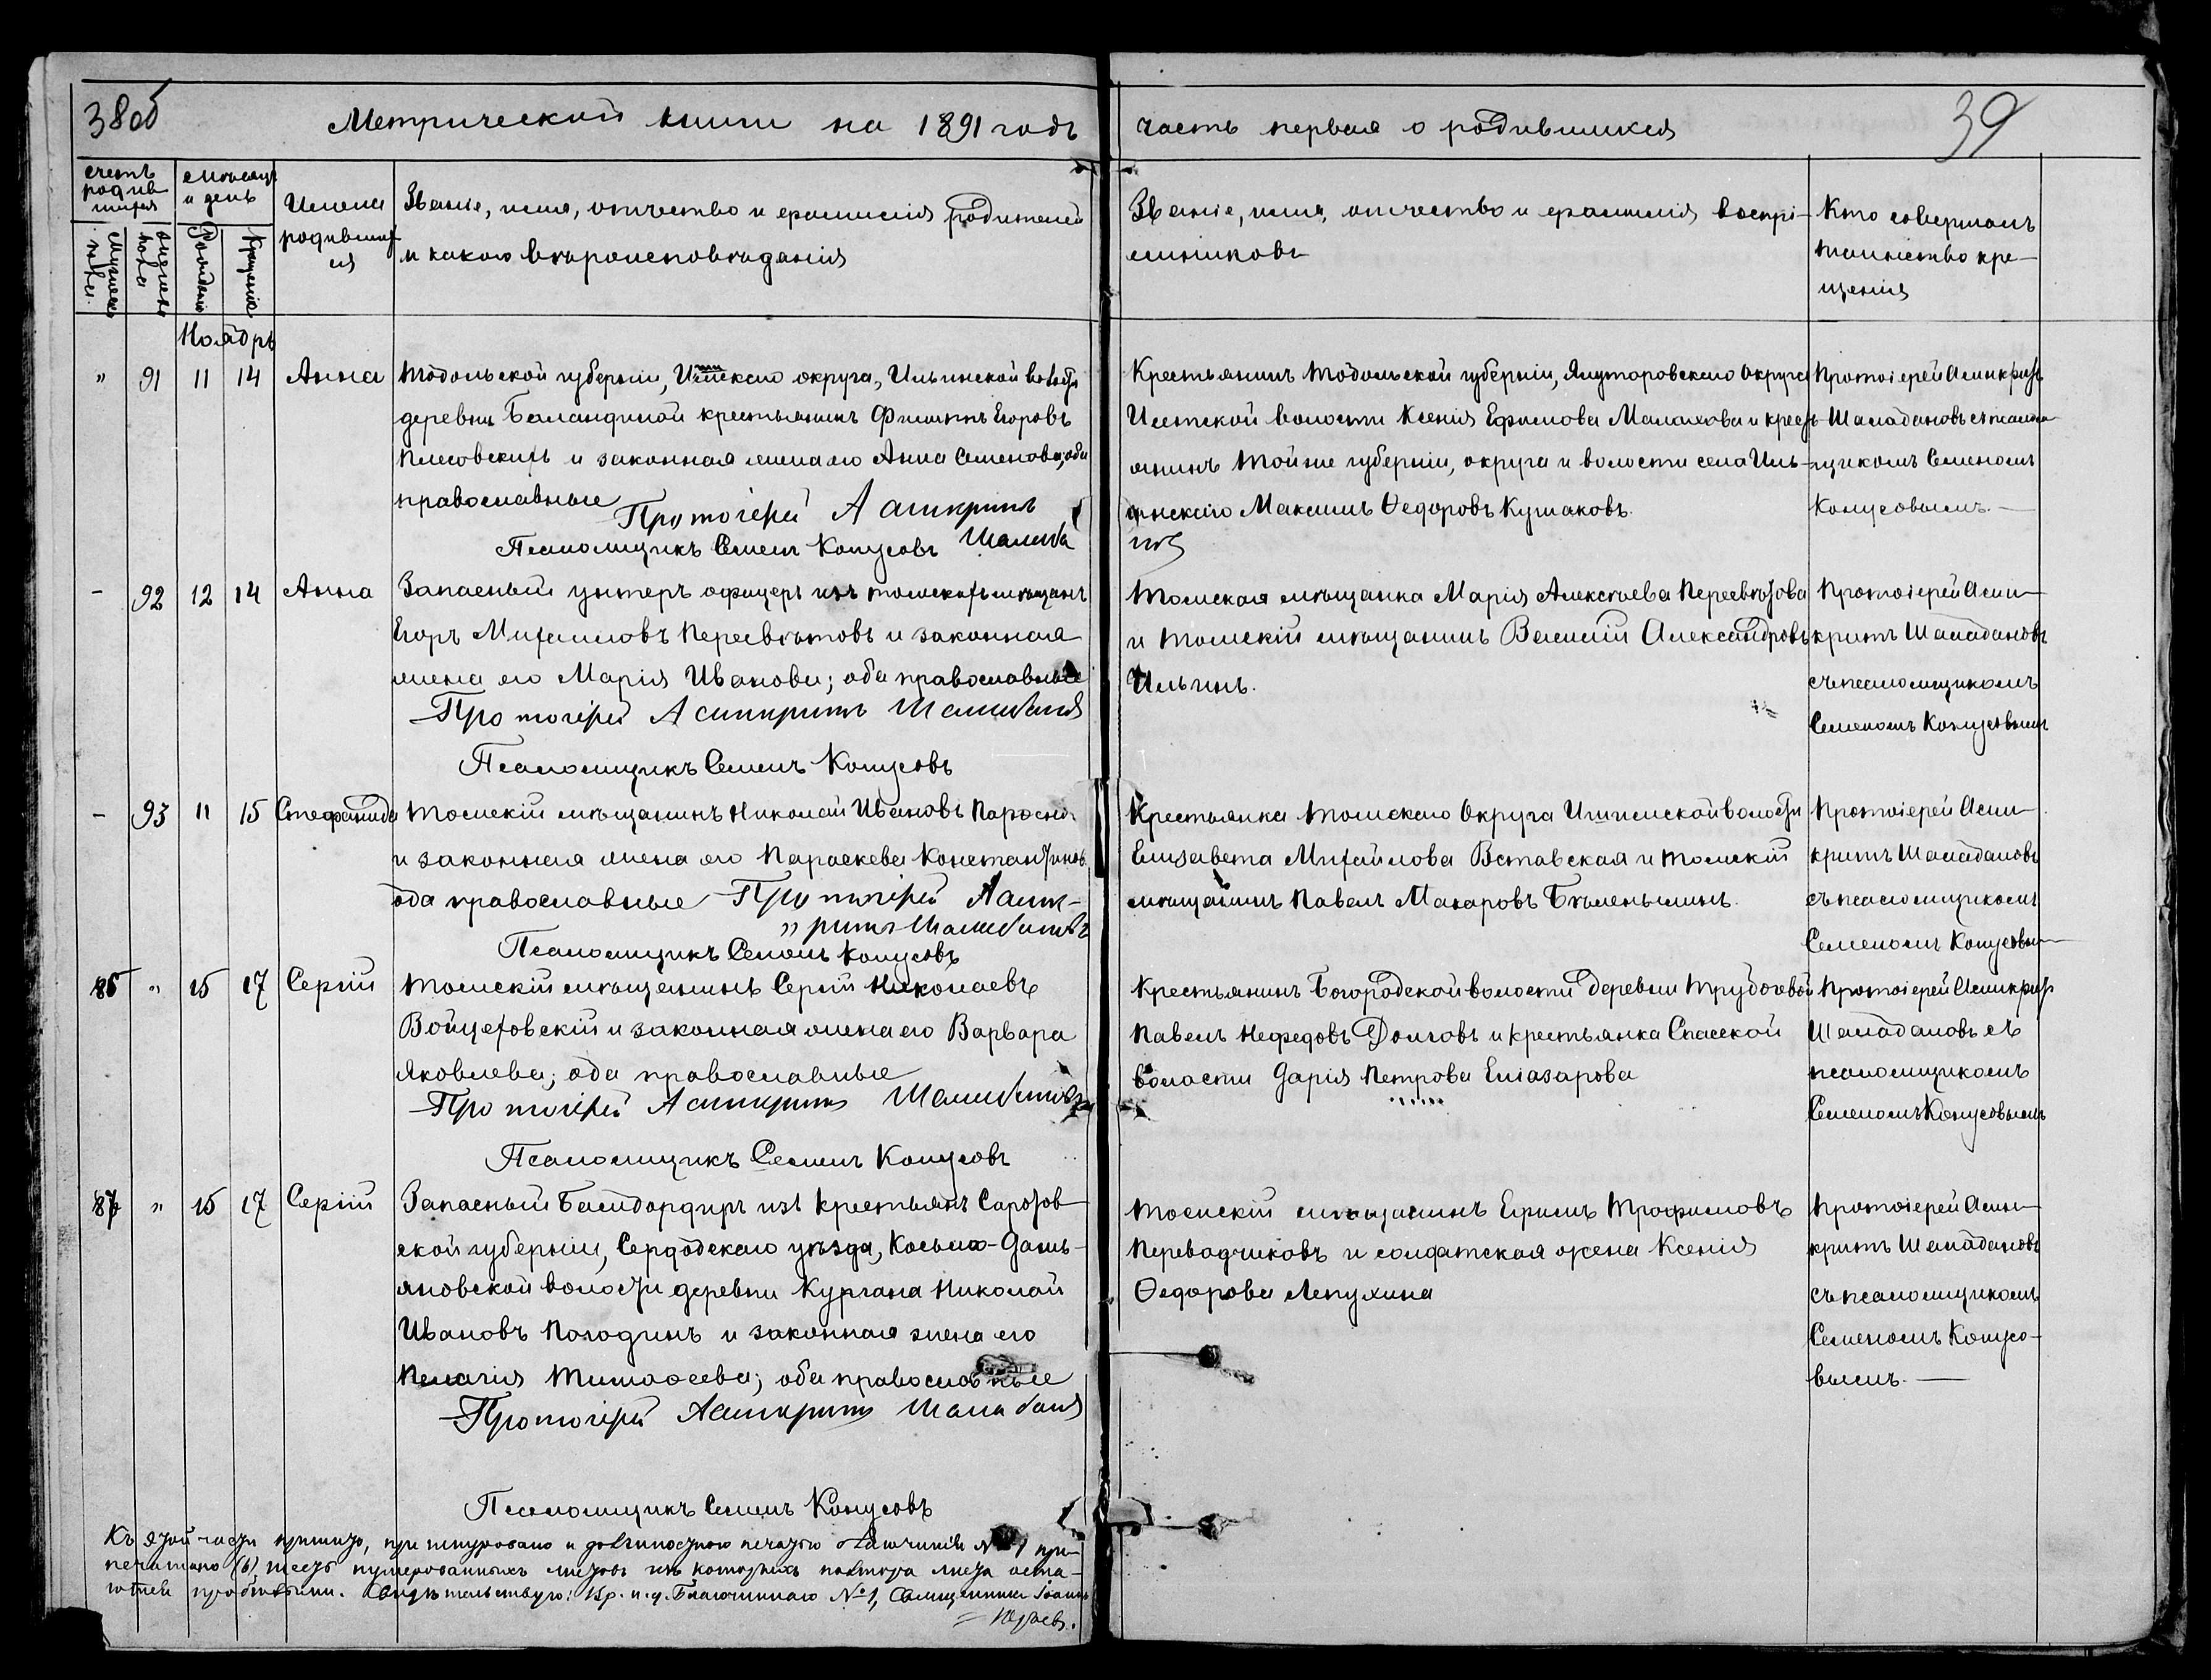 38об
Метрической книги на 1891 годъ
часть первая о родившихся
39
счетъ родив шихся
месяцъ и день
Имена родившихся
Званіе, имя, отчество и фамилія родителей
и какого вѣроисповѣданія
Званіе, имя, отчество и фамилія воспрі-
емниковъ
Кто совершалъ
таинство кре-
щенія
мужеска пола.
женска пола
Рожденія
Крещенія
Ноябрь
" 91 11 14 Анна
Тобольской губерніи, округа, Ильинской волости
деревни Баландиной крестьянинъ Филиппъ Егоровъ
и законная жена его Анна Семенова, оба
православные
Протоіерей Асинкритъ
Псаломщикъ Семенъ Конусовъ
Крестьянинъ Тобольской губерніи, Ялуторовскаго Округа
Исетской волости Ксенія Ефимова Малахова и кресть-
янинъ Тойже губерніи, округа и волости села Иль-
инскаго Максимъ Ѳедоровъ Кушаковъ.
Протоіерей Асинкритъ
Шалабановъ съ псалом-
щикомъ Семеномъ
Конусовымъ.—
- 92 12 14 Анна
Запасный унтеръ офицеръ изъ томскихъ мѣщанъ
Егоръ Михаиловъ Пересвѣтовъ и законная
жена его Марія Иванова; оба православные
Протоіерей Асинкритъ Шалабановъ
Псаломщикъ Семенъ Конусовъ
Томская мѣщанка Марія Алексѣева Пересвѣтова
и Томскій мѣщанинъ Василій Александровъ
Ильинъ.
Протоіерей Асин-
критъ Шалабановъ
съ псаломщикомъ
Семеномъ Конусовымъ
- 93 11 15 Стефанида
Томскій мѣщанинъ Николай Ивановъ
и законная жена его Параскева Константинова
оба православные Протоіерей Асинк-
"ритъ Шалабановъ
Псаломщикъ Семенъ Конусовъ
Крестьянка Томскаго Округа Ишимской волости
Елизавета Михайлова Вставская и томскій
мѣщанинъ Павелъ Макаровъ
Протоіерей Асин-
критъ Шалабановъ
съ псаломщикомъ
Семеномъ Конусовым
86 " 15 17 Сергій
Томскій мѣщанинъ Сергій Николаевъ
Войцеховскій и законная жена его Варвара
Яковлева; оба православные
Протоіерей Асинкритъ Шалабановъ
Псаломщикъ Семенъ Конусовъ
Крестьянинъ Богородской волости деревни Трубочевой
Павелъ Нефедовъ Долговъ и крестьянка Спасской
волости Дарія Петрова Еліазарова
Протоіерей Асинкритъ
Шалабановъ съ
псаломщикомъ
Семеномъ Конусовымъ
87 " 15 17 Сергій
Запасный Бомбардиръ изъ крестьянъ Саратов-
ской губерніи, Сердобскаго уѣзда, Косьмо-Дамь-
яновской волости деревни Кургана Николай
Ивановъ Погодинъ и законная жена его
Пелагія Тимофеева; оба православные
Протоіерей Асинкритъ Шалабановъ
Псаломщикъ Семенъ Конусовъ
Томскій мѣщанинъ Ефимъ Трофимовъ
Переводчиковъ и солдатская жена Ксенія
Ѳедорова Лепухина
Протоіерей Асин-
критъ Шалабановъ
съ псаломщикомъ
Семеномъ Конусо-
вымъ.—
Къ этой части пришито, при шнуровано и должностною печатью Благочинія № 1 при-
печатано (6) шесть нумерованныхъ листовъ изъ которыхъ полтора листа оста-
ются пробѣльными. Свидѣтельствую: Вр. и. д. Благочиннаго № 1, Священникъ Іоаннъ